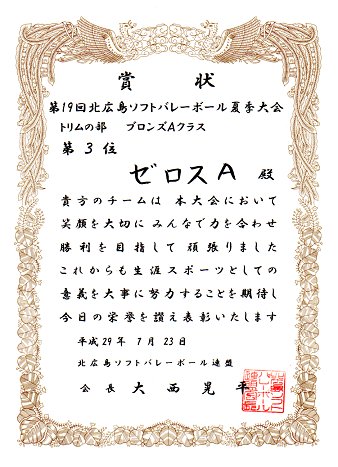 賞状
第19回北広島ソフトバレーボール夏季大会
トリムの部 ブロンズAクラス
第3位
ゼロスA 殿
貴方のチームは 本大会において
笑顔を大切に みんなで力を合わせ
勝利を目指して 頑張りました
これからも生涯スポーツとしての
意義を大事に努力することを期待し
今日の栄誉を讃え表彰いたします
平成29年 7月 23日
北広島ソフトバレーボール連盟
会長 大西晃平